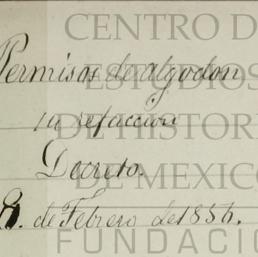 CENTRO D
Permisos de algodon
ESTUDIOS
su refaccion
DE HISTOR
Decreto.
DE MEXICO
8. de Febrero de 1856.
FUNDACIO